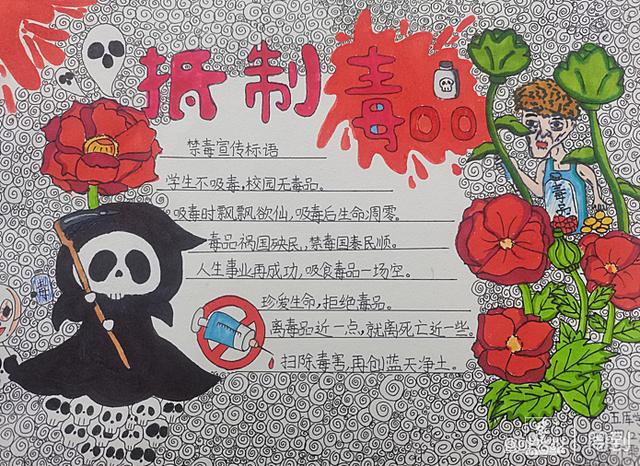 抵制毒品
禁毒宣传标语
学生不吸毒,校园无毒品。
吸毒时飘飘欲仙,吸毒后生命凋零。
毒品祸国殃民,禁毒国泰民顺。
人生事业再成功,吸食毒品一场空。
珍爱生命,拒绝毒品。
离毒品近一点,就离死亡近一些。
扫除毒害,再创蓝天净土。
毒品